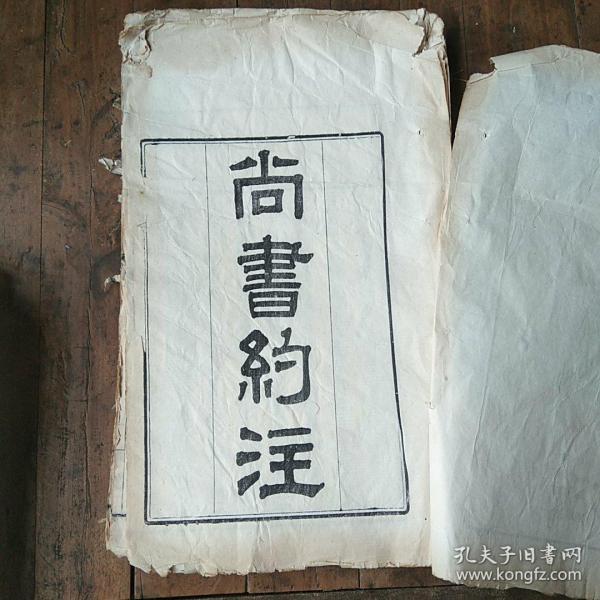 尚書約注
孔夫子旧書网
www.kongfz.com